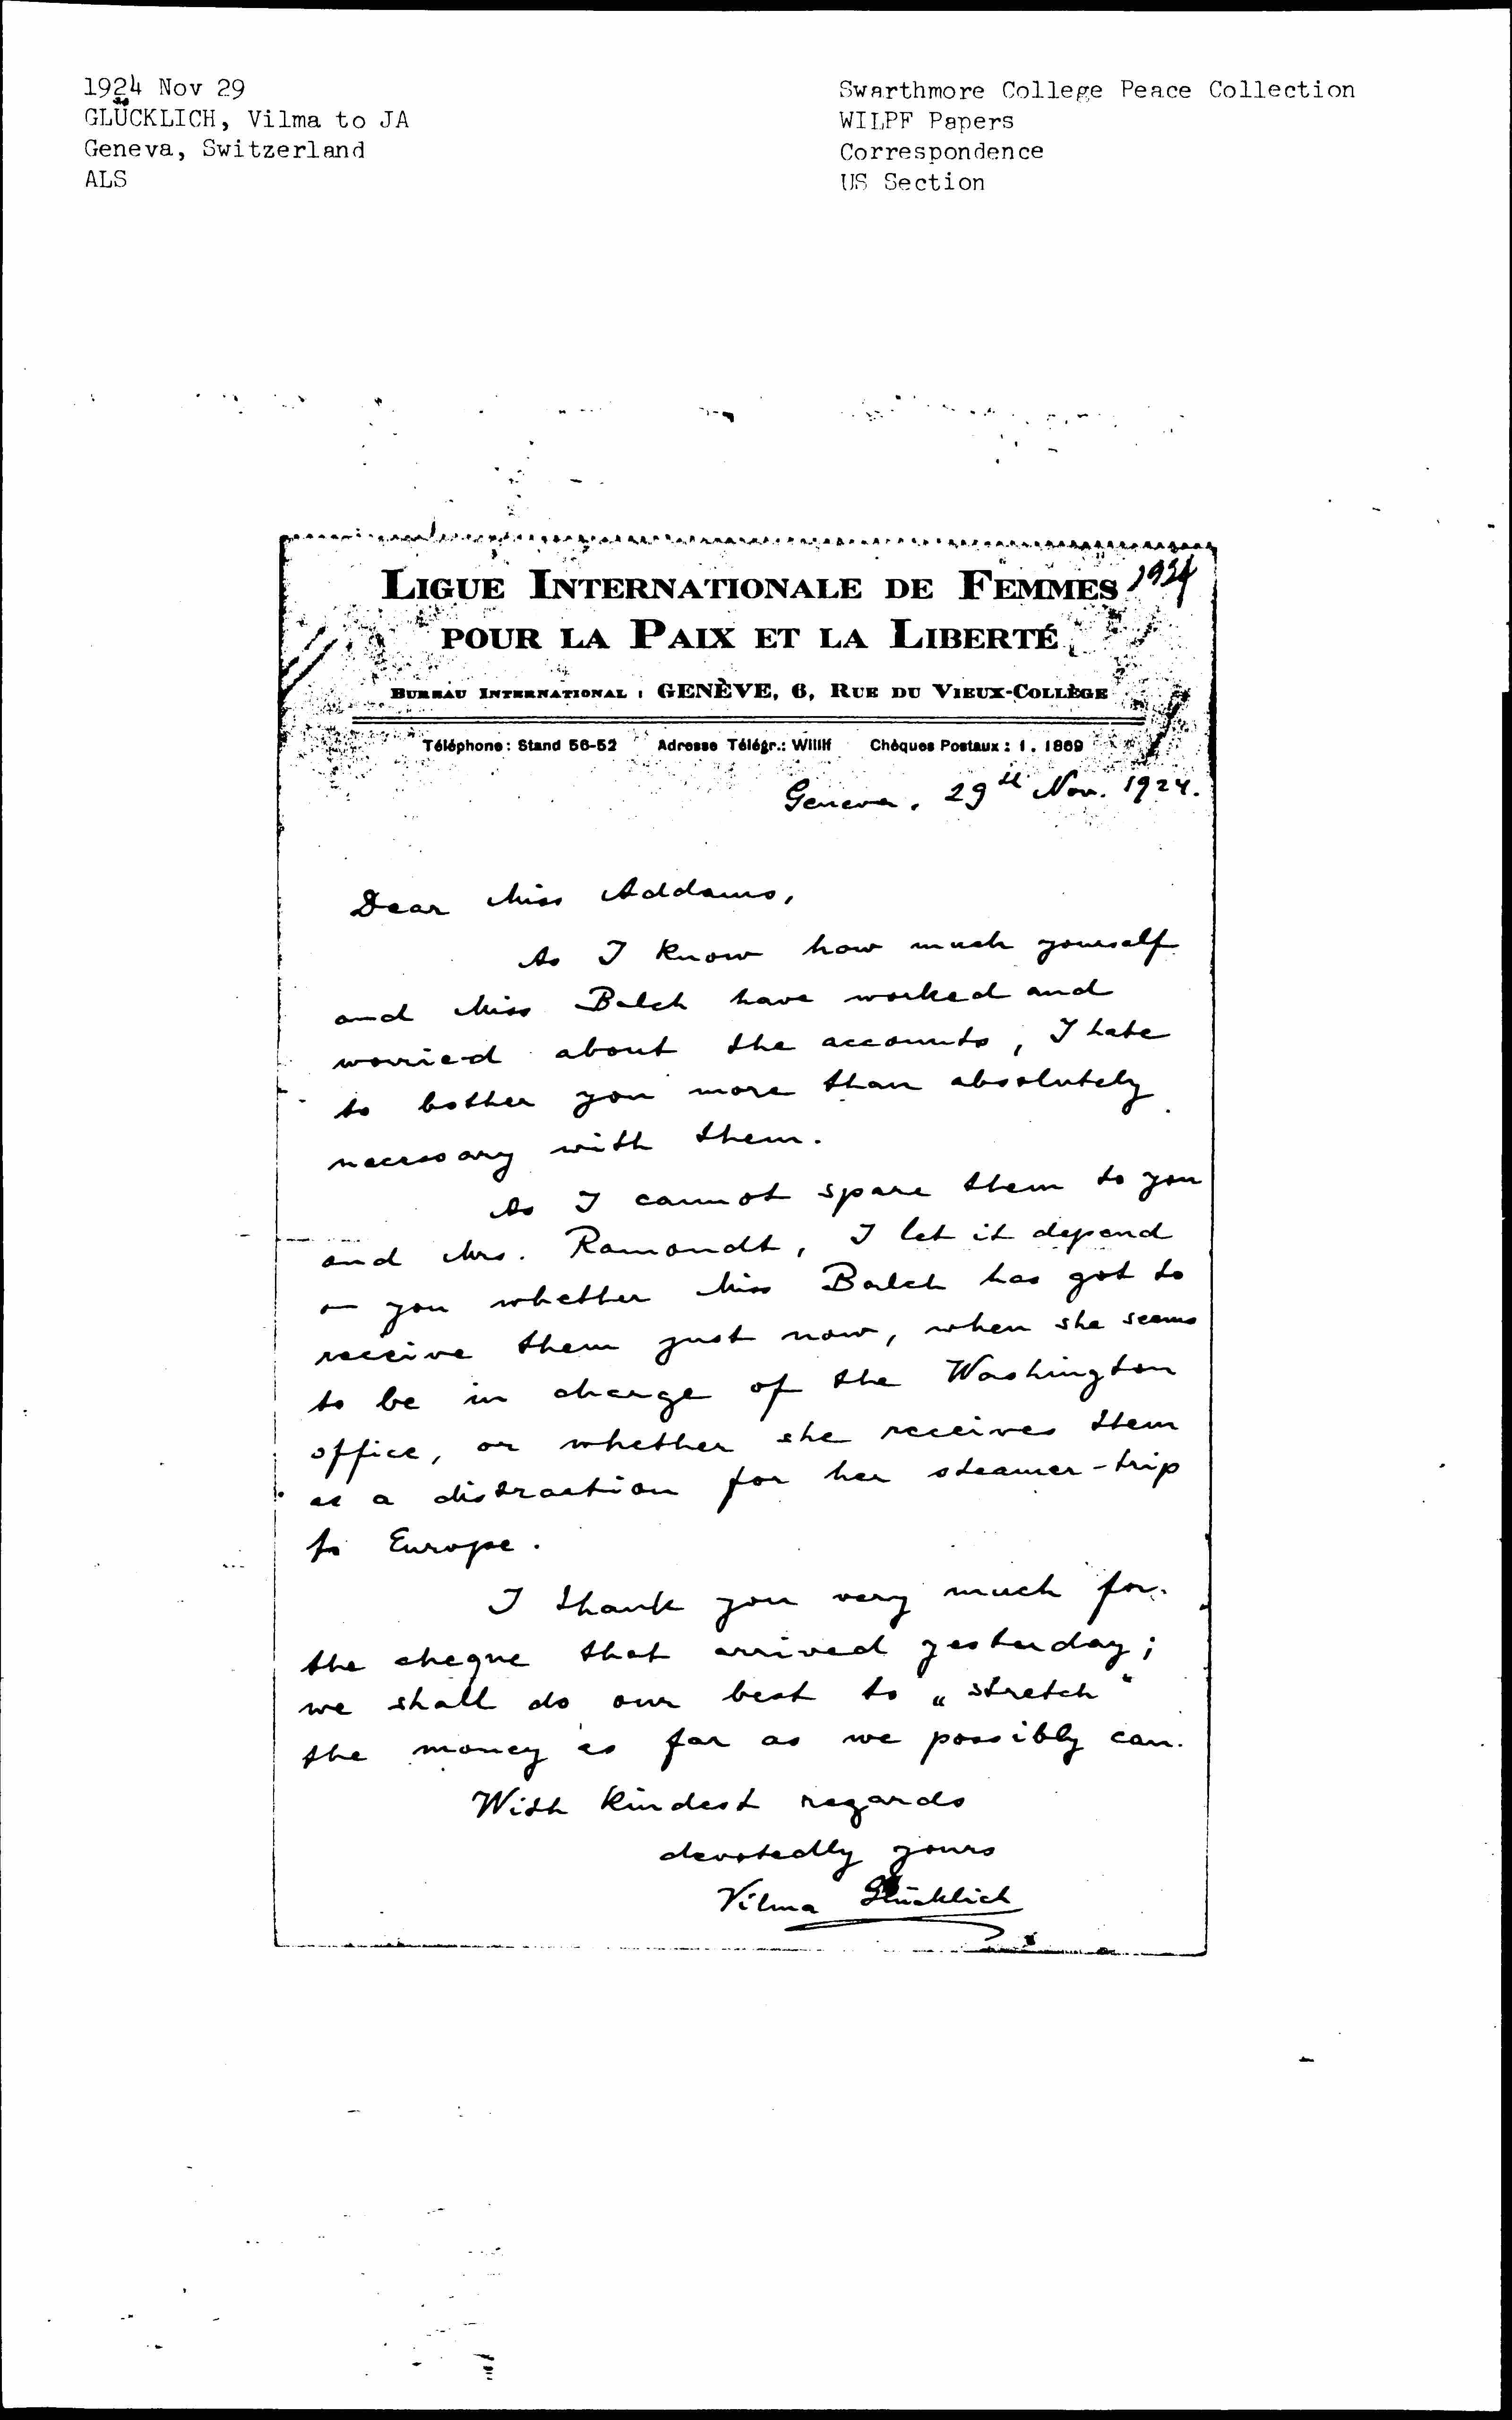 1924 Nov 29
GLÜCKLICH, Vilma to JA
Geneva, Switzerland
ALS
Swarthmore College Peace Collection
WILPF Papers
Correspondence
US Section
1924
LIGUE INTERNATIONALE DE FEMMES
POUR LA PAIX ET LA LIBERTÉ
BUREAU INTERNATIONAL : GENÈVE, 6, RUE DU VIEUX-COLLÈGE
Téléphone: Stand 56-52 Adresse Télégr.: Willif Chèques Postaux : I. 1869
Geneva, 29th Nov. 1924.
Dear Miss Addams,
As I know how much yourself
and Miss Balch have worked and
worried about the accounts, I hate
to bother you more than absolutely
necessary with them.
As I cannot spare them to you
and Mrs. Ramondt, I let it depend
on you whether Miss Balch has got to
receive them just now, when she seems
to be in charge of the Washington
office, or whether she receives them
as a distraction for her steamer-trip
to Europe.
I thank you very much for
the cheque that arrived yesterday;
we shall do our best to „stretch"
the money as far as we possibly can.
With kindest regards
devotedly yours
Vilma Glücklich